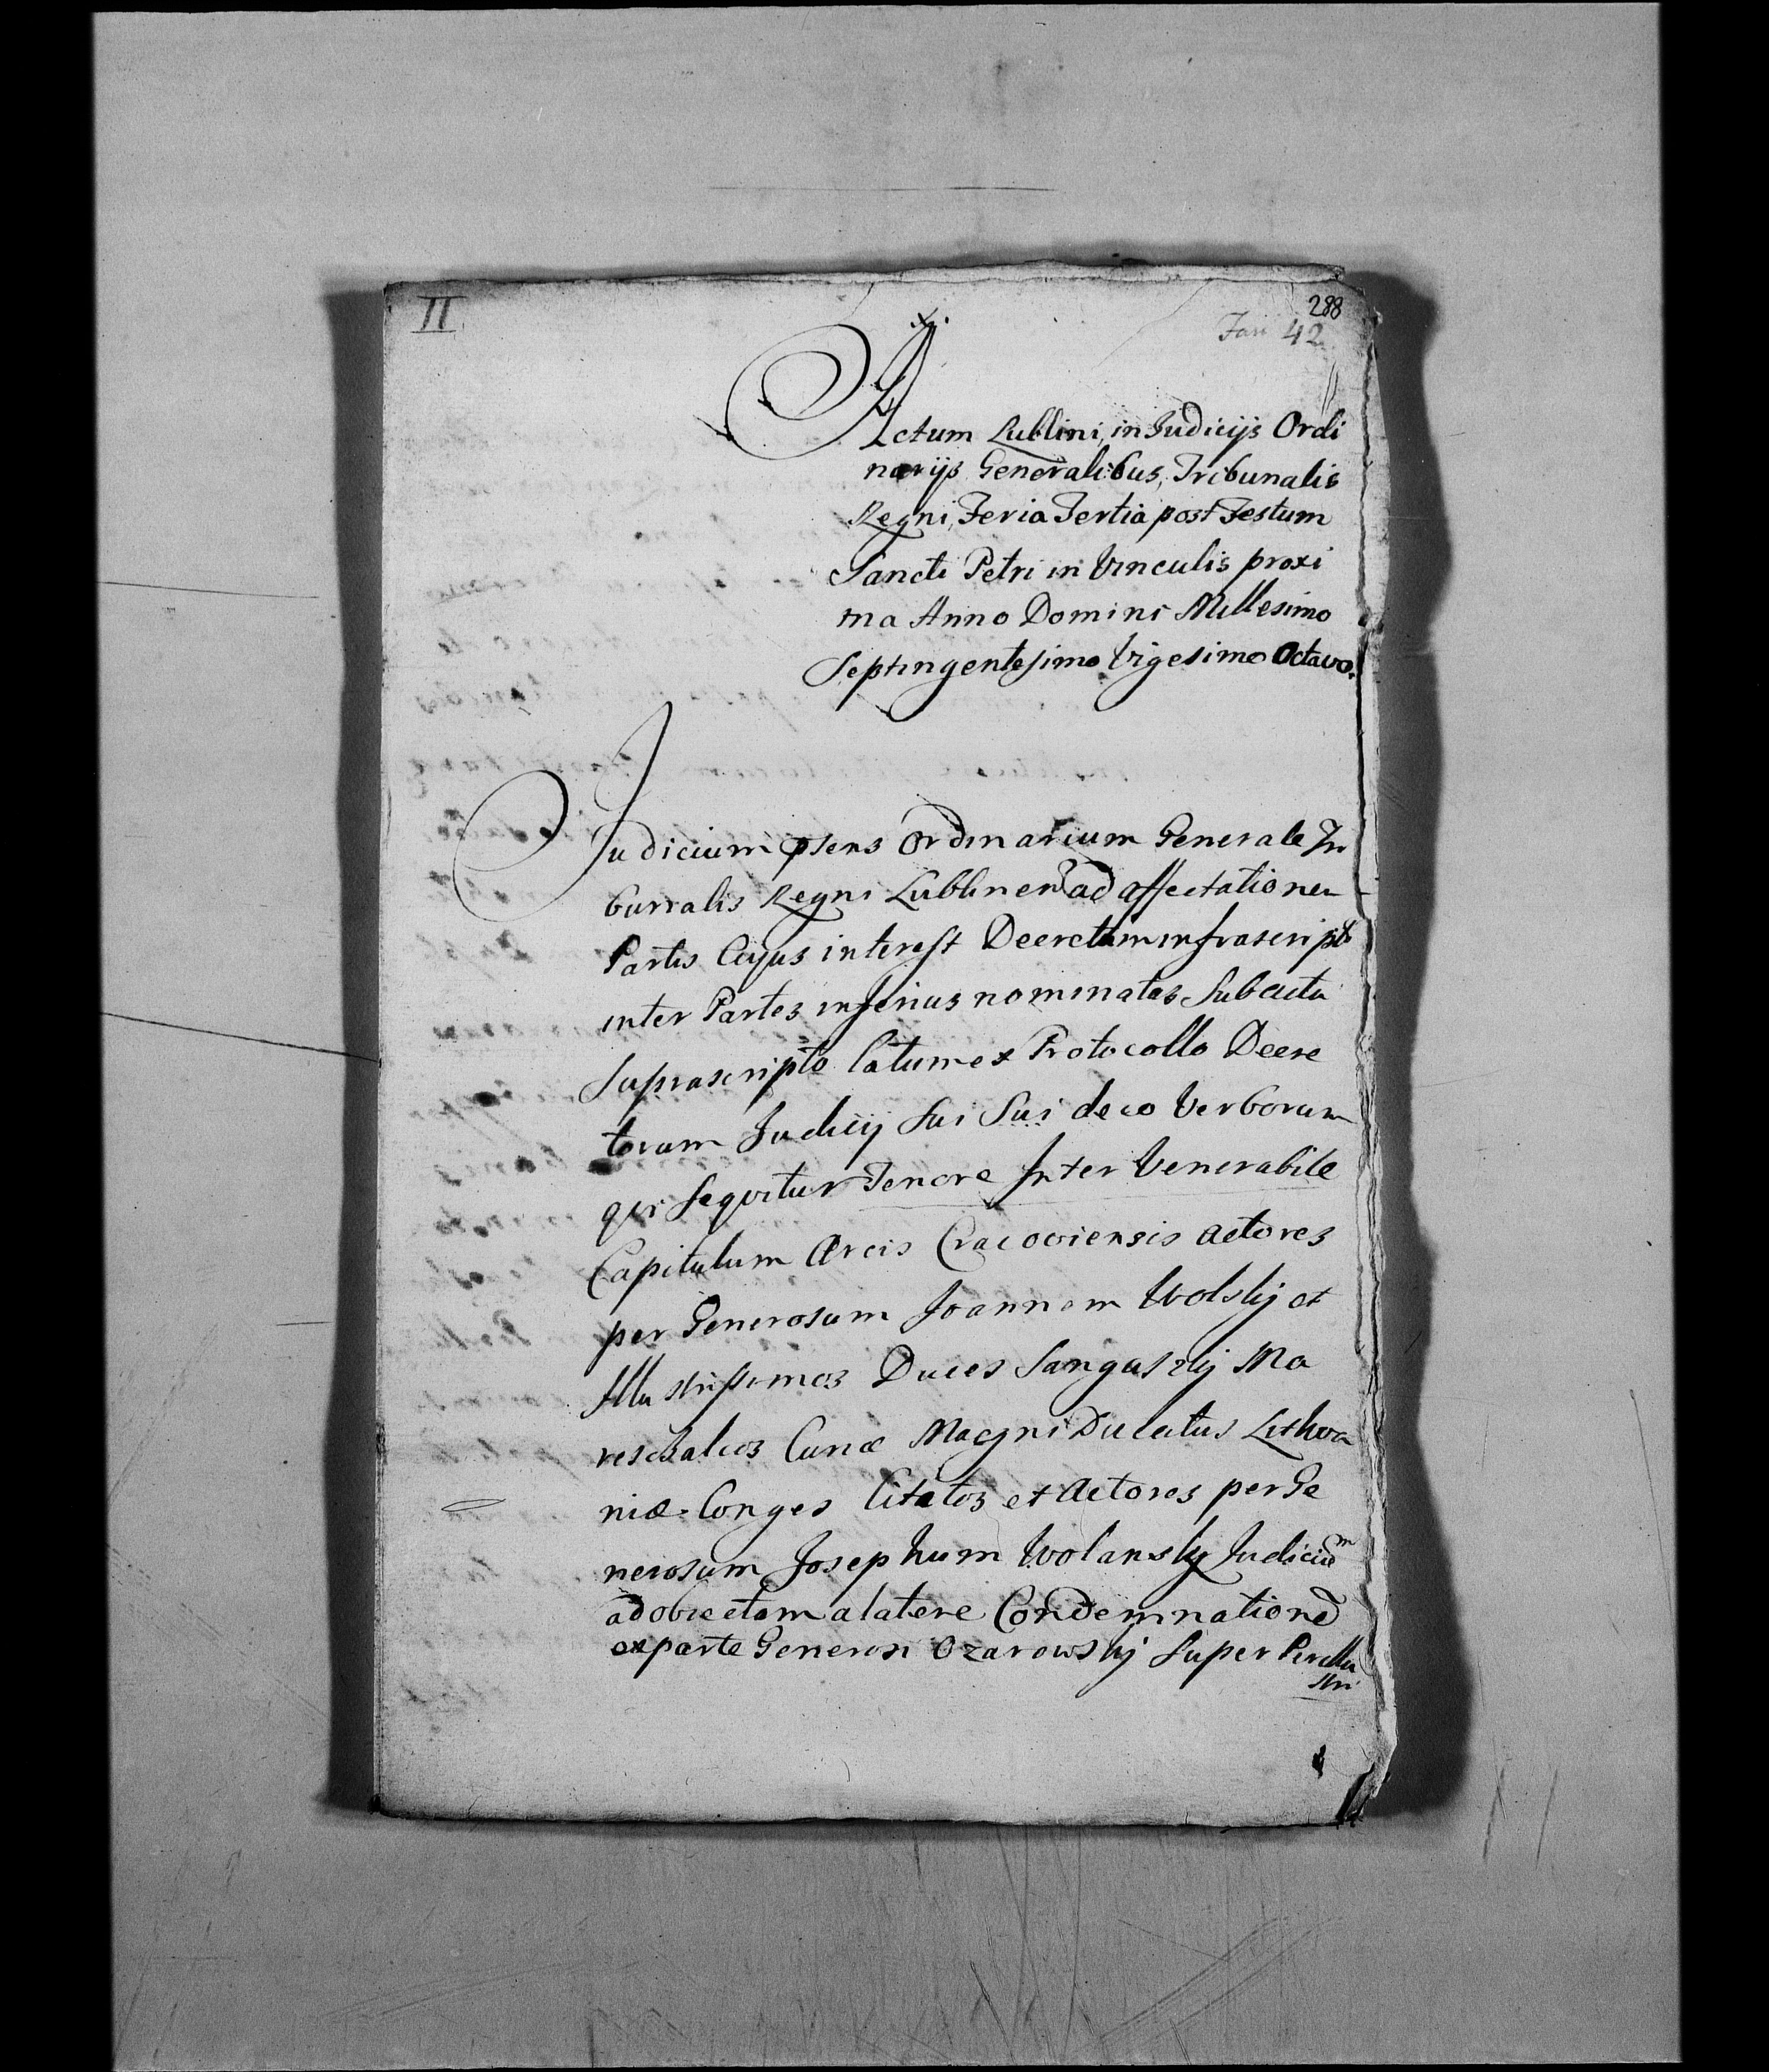 II
288
42
Actum Lublini, in Judicijs Ordi
narijs Generalibus, Tribunalis
Regni, Feria Tertia post Festum
Sancti Petri in Vinculis proxi
ma Anno Domini Millesimo
Septingentesimo Vigesimo Octavo.
Judicium psens Ordinarium Generale Tri
bunalis Regni Lublinen ad affectationem
Partis Cujus interest Decretum infrascript
inter Partes inferius nominatas Sub actu
Suprascripto latum ex Protocollo Decre
torum Judicij Sui Sui de eo Verborum
qui Sequitur Tenore Inter Venerabile
Capitulum Arcis Cracoviensis Actores
per Generosum Joannem Wolskij et
Illustrissimos Duces Sanguszkij Ma
reschalcos Curiæ Magni Ducatus Lithva
niæ Conges Citatos et Actores per Ge
nerosum Josephum Wolanskij Judicium
ad obiectam a latere Condemnatione
ex parte Generosi Ozarowskij Super Perillu
stri